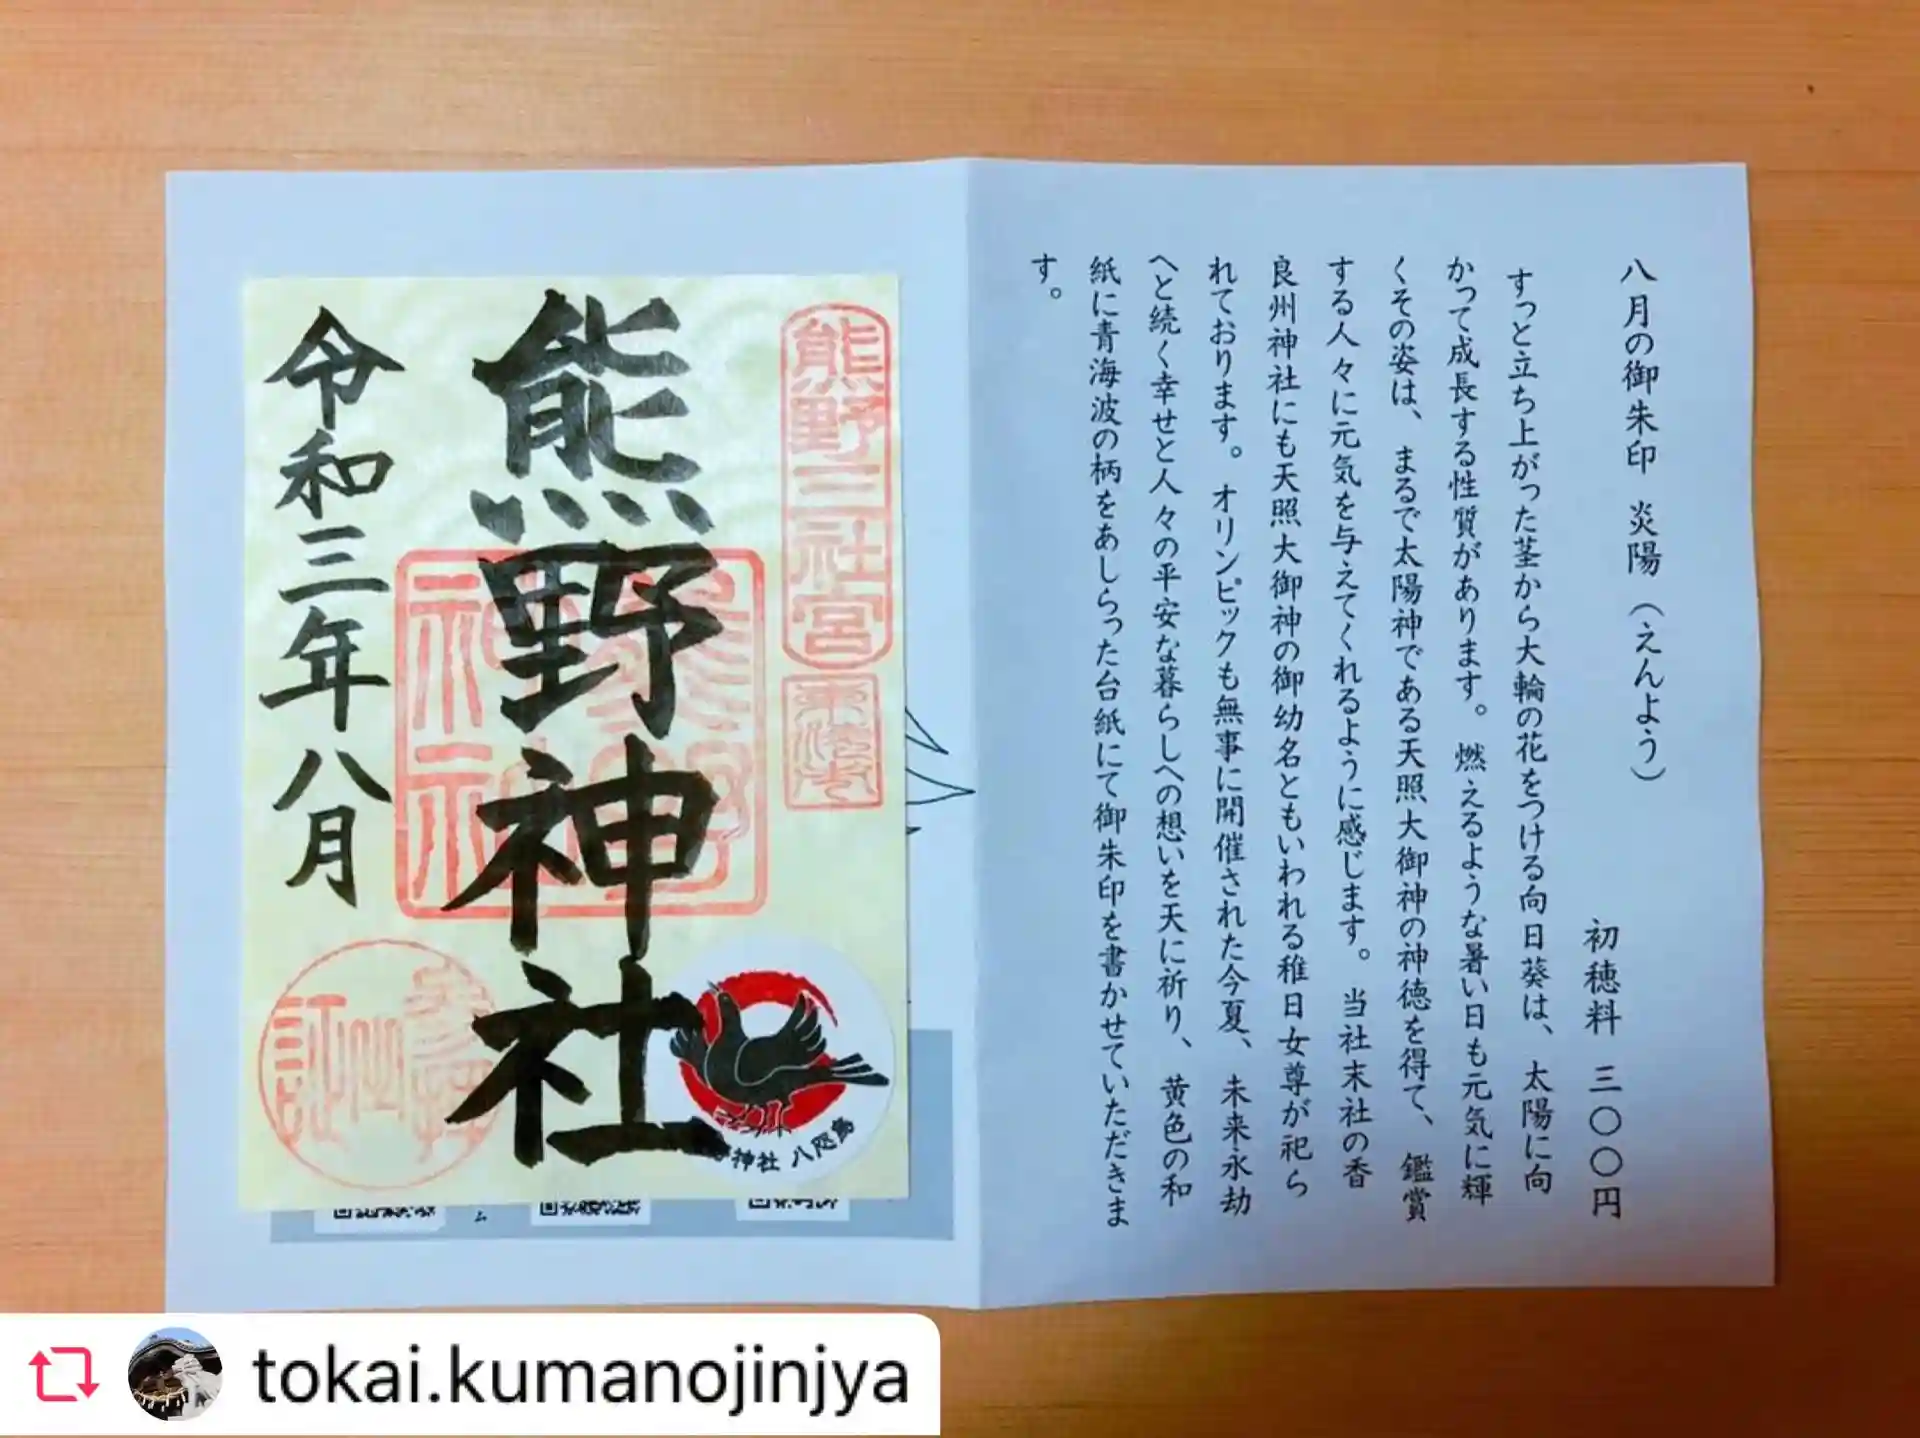 八月の御朱印 炎陽（えんよう）
初穂料 三〇〇円
すっと立ち上がった茎から大輪の花をつける向日葵は、太陽に向
かって成長する性質があります。燃えるような暑い日も元気に輝
くその姿は、まるで太陽神である天照大御神の神徳を得て、鑑賞
する人々に元気を与えてくれるように感じます。当社末社の香
良州神社にも天照大御神の御幼名ともいわれる稚日女尊が祀ら
れております。オリンピックも無事に開催された今夏、未来永劫
へと続く幸せと人々の平安な暮らしへの想いを天に祈り、黄色の和
紙に青海波の柄をあしらった台紙にて御朱印を書かせていただきま
す。
熊野三社宮
熊野神社
令和三年八月
神社 八咫烏
tokai.kumanojinjya